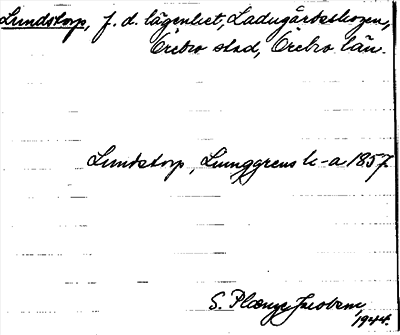 Lundstorp, f. d. lägenhet, Ladugårdsskogen,
Örebro stad, Örebro län.
Lundstorp, Ljunggrens k-a 1857
S. Plænge Jacobsen,
1944.